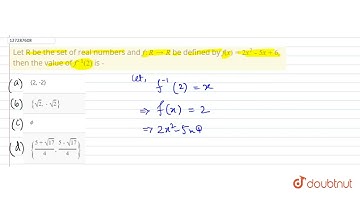 127287608
Let R be the set of real numbers and f: R → R be defined by f(x) = 2x² - 5x + 6,
then the value of f⁻¹(2) is -
(a) {2, -2}
(b) {√2, -√2}
(c) φ
(d) {5 + √17/4, 5 - √17/4}
Let,
f⁻¹(2) = x
⇒ f(x) = 2
⇒ 2x² - 5x
doubtnut